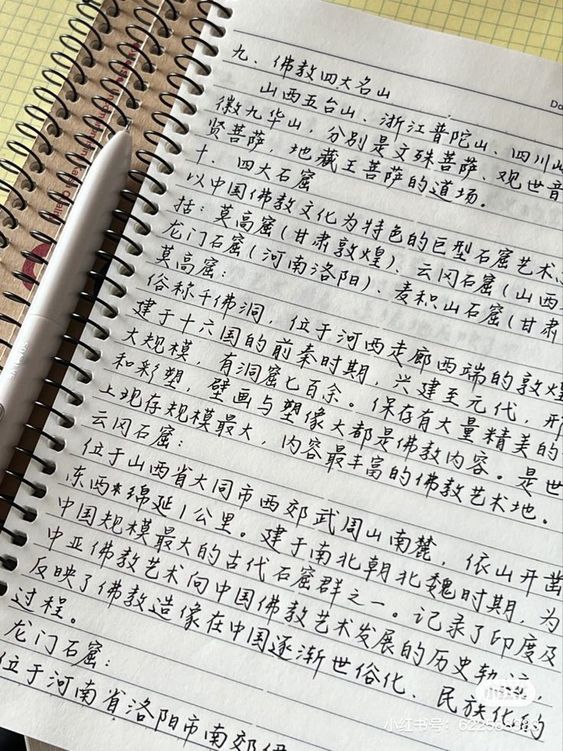 九、佛教四大名山
山西五台山、浙江普陀山、四川
徽九华山，分别是文殊菩萨、观世音
贤菩萨、地藏王菩萨的道场。
十、四大石窟
以中国佛教文化为特色的巨型石窟艺术
括：莫高窟(甘肃敦煌)、云冈石窟(山西
龙门石窟(河南洛阳)、麦积山石窟(甘肃
莫高窟：
俗称千佛洞，位于河西走廊西端的敦煌
建于十六国的前秦时期，兴建至元代，形
大规模，有洞窟七百余。保存有大量精美的
和彩塑 壁画与塑像大都是佛教内容。是世
上现存规模最大，内容最丰富的佛教艺术地。
云冈石窟：
位于山西省大同市西郊武周山南麓，依山开凿
东西绵延1公里。建于南北朝北魏时期，为
中国规模最大的古代石窟群之一。记录了印度及
中亚佛教艺术向中国佛教艺术发展的历史轨
反映了佛教造像在中国逐渐世俗化、民族化的
过程。
龙门石窟：
位于河南省洛阳市南郊伊
Do
小红书
小红书号：